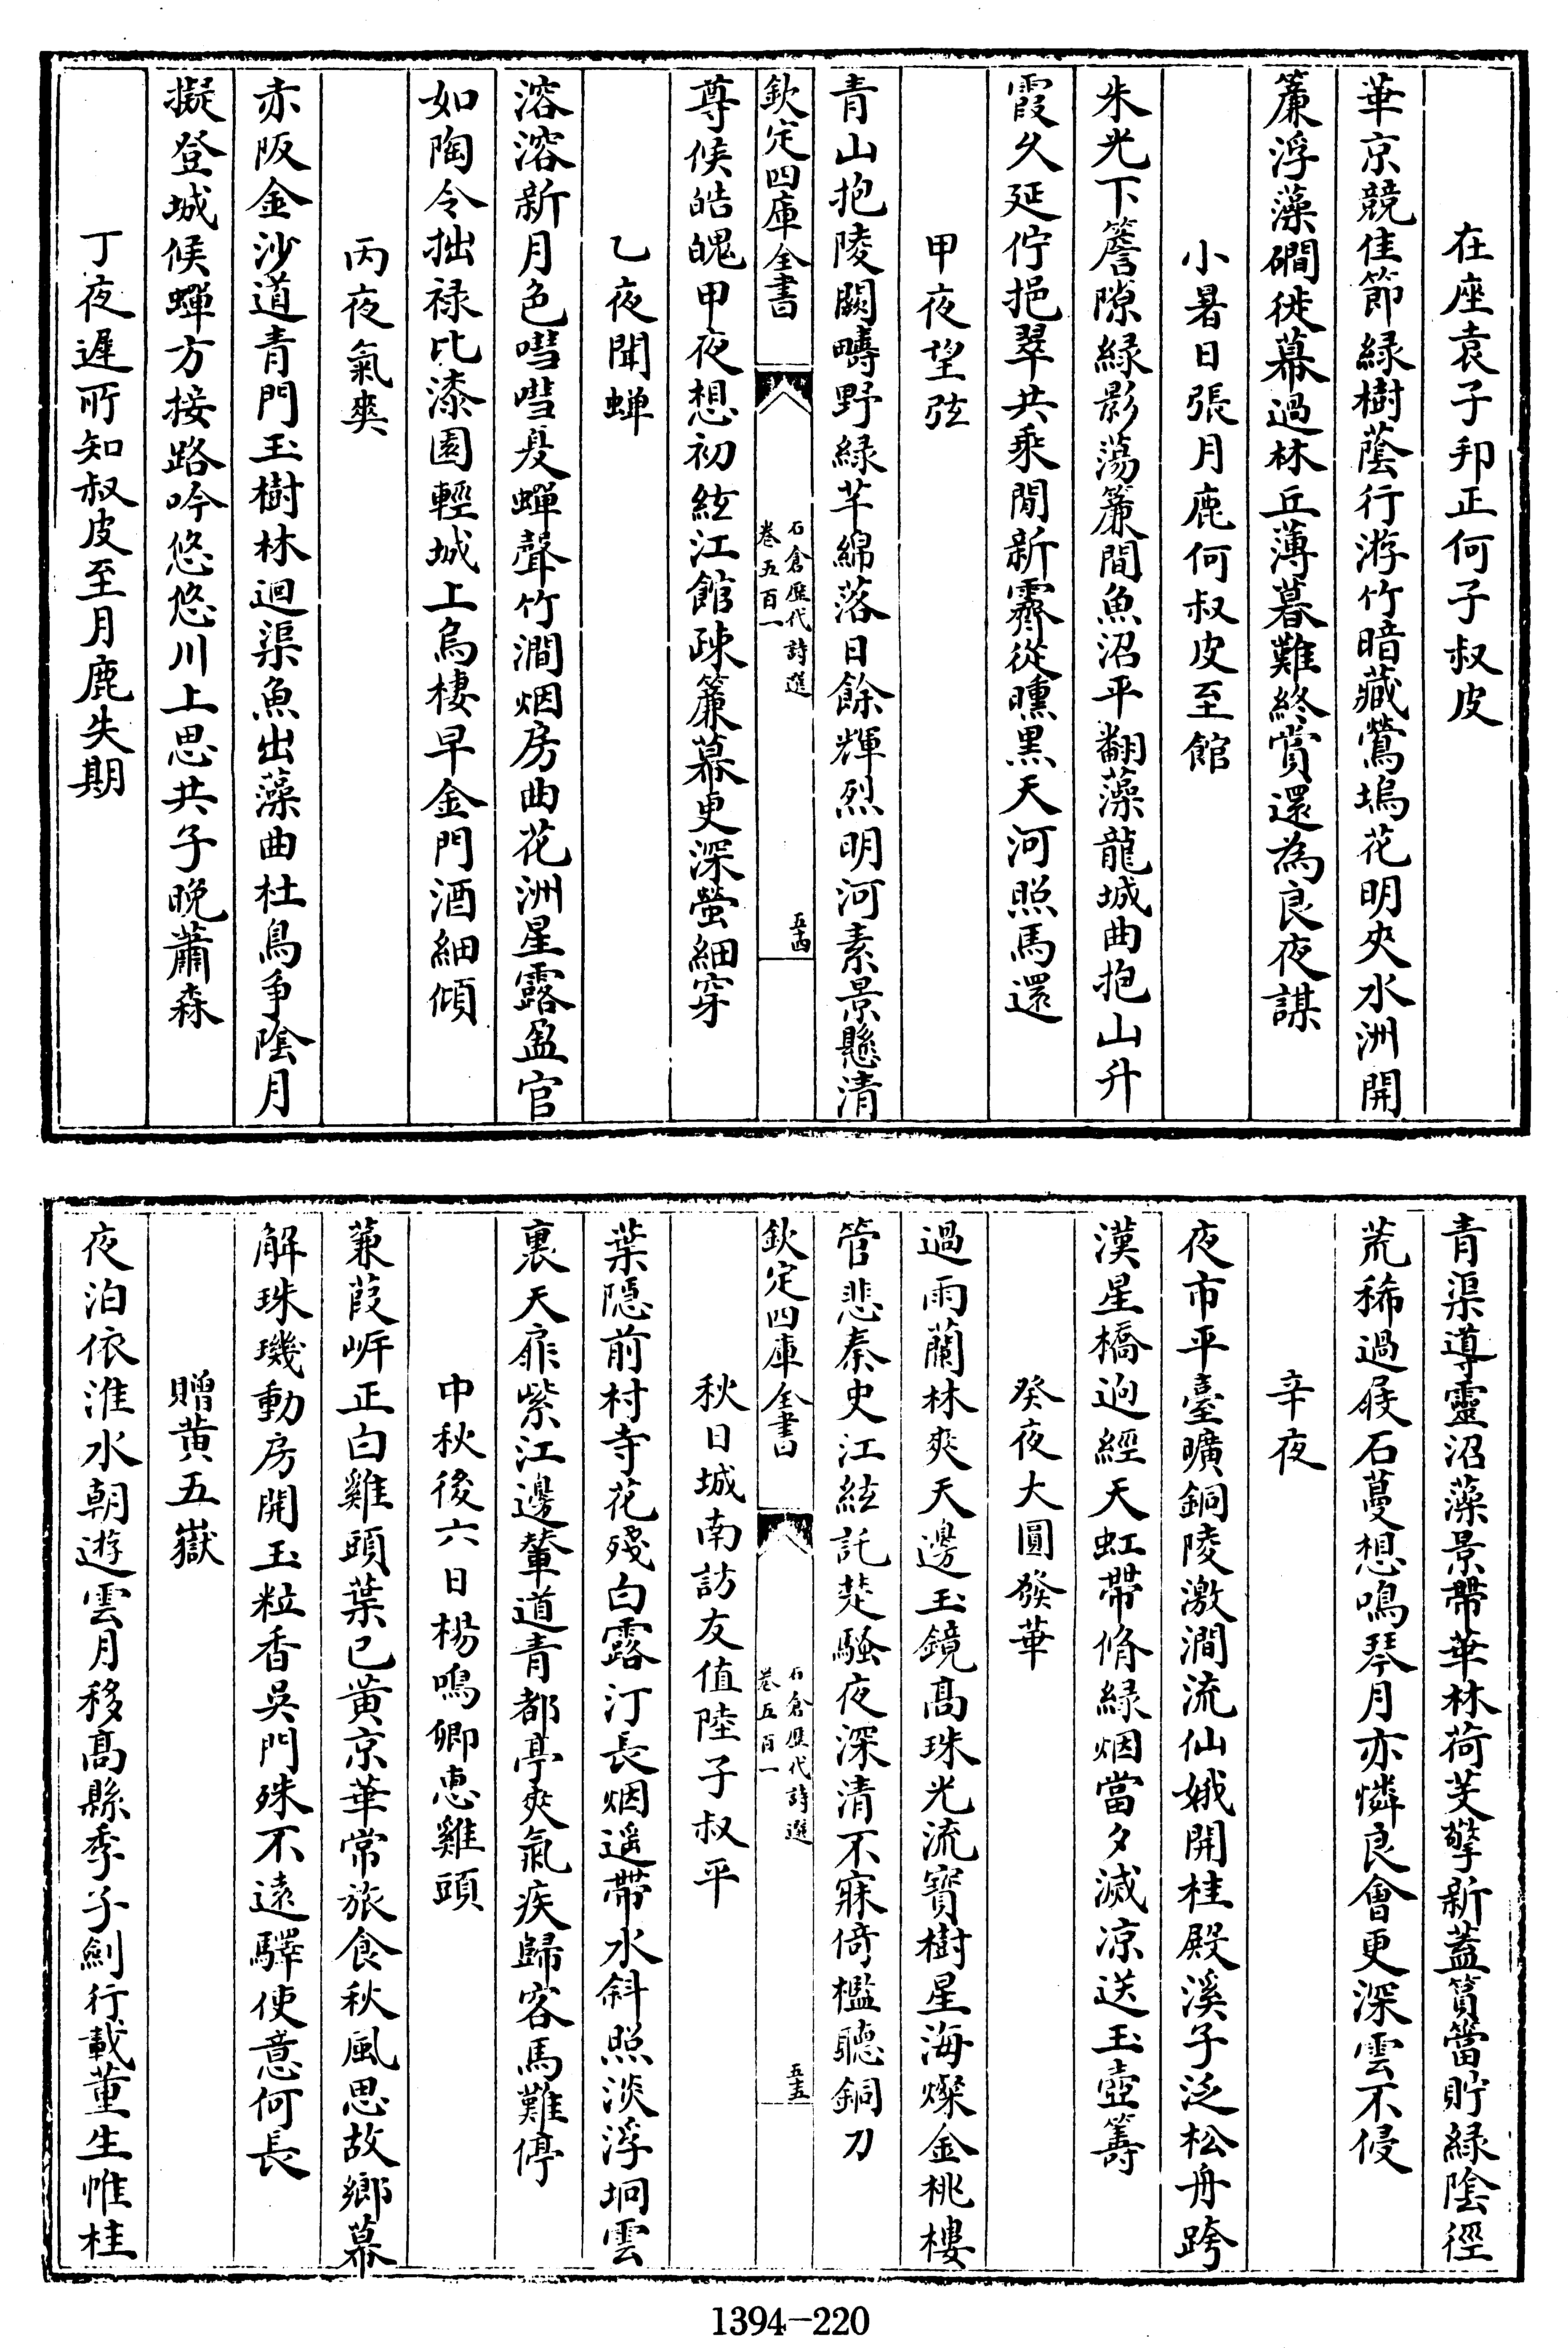 在座袁子邦正何子叔皮
華京競佳節緑樹蔭行游竹暗藏鶯塢花明夾水洲開
簾浮藻磵徙幕過林丘薄暮難終賞還為良夜謀
小暑日張月鹿何叔皮至館
朱光下簷隙緑影蕩簾間魚沼平翻藻龍城曲抱山升
霞久延佇挹翠共乘閒新霽從曛黒天河照馬還
甲夜望弦
青山抱陵闕疇野緑芊綿落日餘輝烈明河素景懸清
欽定四庫全書
石倉歷代詩選
卷五百一
五十四
尊候皓魄甲夜想初絃江館疎簾幕更深螢細穿
乙夜聞蟬
溶溶新月色嘒嘒夏蟬聲竹澗烟房曲花洲星露盈官
如陶令拙禄比漆園輕城上烏棲早金門酒細傾
丙夜氣爽
赤阪金沙道青門玉樹林迴渠魚出藻曲杜鳥争陰月
擬登城候蟬方接路吟悠悠川上思共子晚蕭森
丁夜遲所知叔皮至月鹿失期
青渠導靈沼藻景帶華林荷芰擎新蓋篔簹貯緑陰徑
荒稀過屐石蔓想鳴琴月亦憐良會更深雲不侵
辛夜
夜市平臺曠銅陵激澗流仙娥開桂殿溪子泛松舟跨
漢星橋逈經天虹帶脩緑烟當夕滅凉送玉壺籌
癸夜大圓發華
過雨蘭林爽天邊玉鏡髙珠光流寳樹星海燦金桃樓
管悲秦史江絃託楚騷夜深清不寐倚檻聽銅刀
欽定四庫全書
石倉歷代詩選
卷五百一
五十五
秋日城南訪友值陸子叔平
葉隱前村寺花殘白露汀長烟遥帶水斜照淡浮坰雲
裏天扉紫江邊輦道青都亭爽氣疾歸客馬難停
中秋後六日楊鳴卿惠雞頭
蒹葭㟁正白雞頭葉已黄京華常旅食秋風思故鄉幕
解珠璣動房開玉粒香吳門殊不遠驛使意何長
贈黄五嶽
夜泊依淮水朝遊雲月移髙縣季子劍行載董生帷桂
1394-220